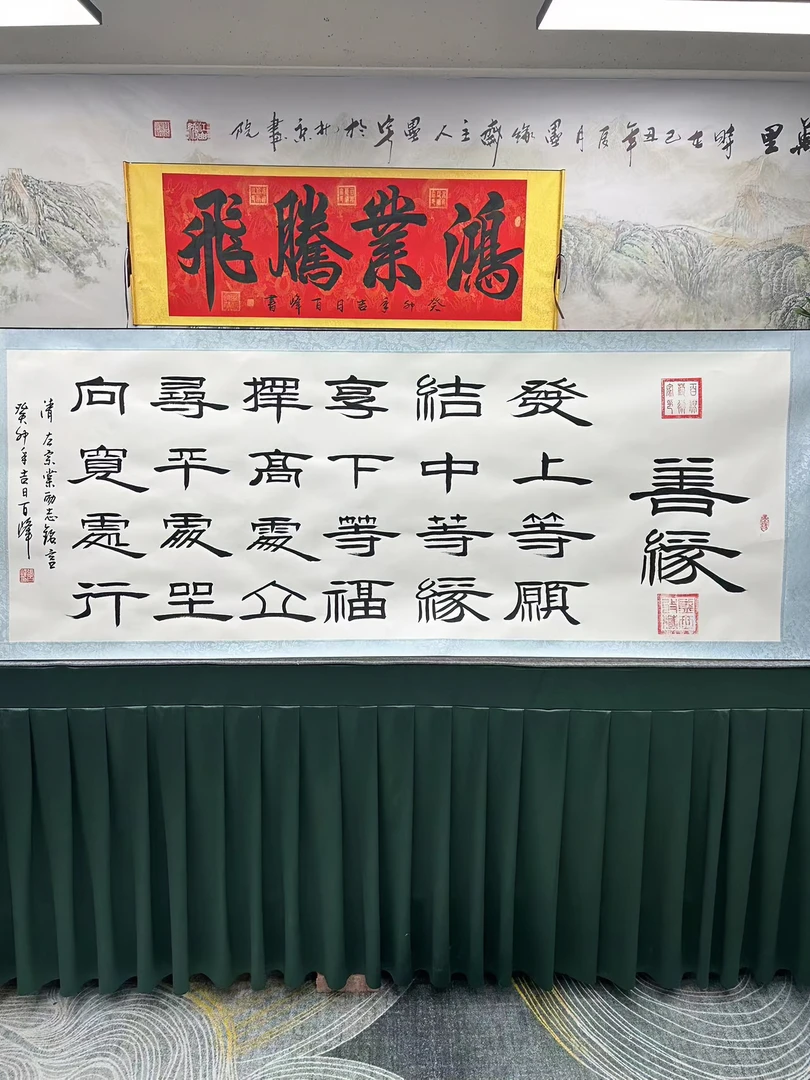 里 時在己丑年夏月墨緣齋主人墨於北京畫院
鴻業騰飛
癸卯年吉日百峰書
善緣
發上等願
結中等緣
享下等福
擇高處立
尋平處坐
向寬處行
清左宗棠励志銘言
癸卯年吉日百峰